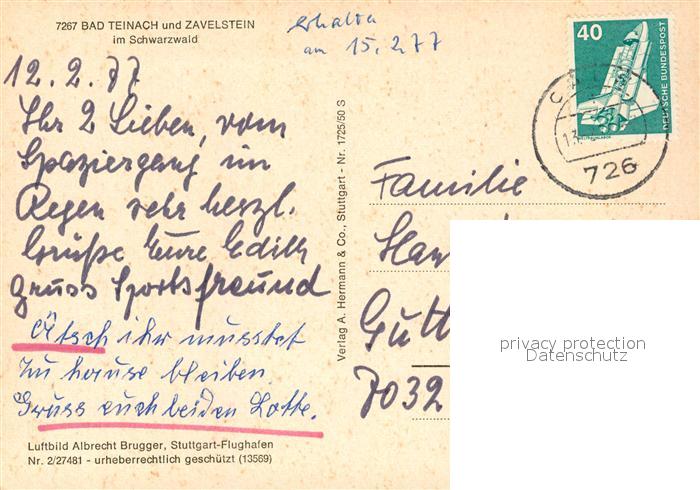 7267 BAD TEINACH und ZAVELSTEIN
im Schwarzwald
erhalten
am 15.2.77
12.2.77
Ihr 2 Lieben, vom
Spaziergang im
Regen sehr herzl.
Grüße Eure Edith
Gruss Sportsfreund
Ätsch ihr musstet
zu hause bleiben.
Gruss euch beiden Lotte.
Luftbild Albrecht Brugger, Stuttgart-Flughafen
Nr. 2/27481 - urheberrechtlich geschützt (13569)
Verlag A. Hermann & Co., Stuttgart - Nr. 1725/50 S
40
DEUTSCHE BUNDESPOST
726
Familie
7032
privacy protection
Datenschutz